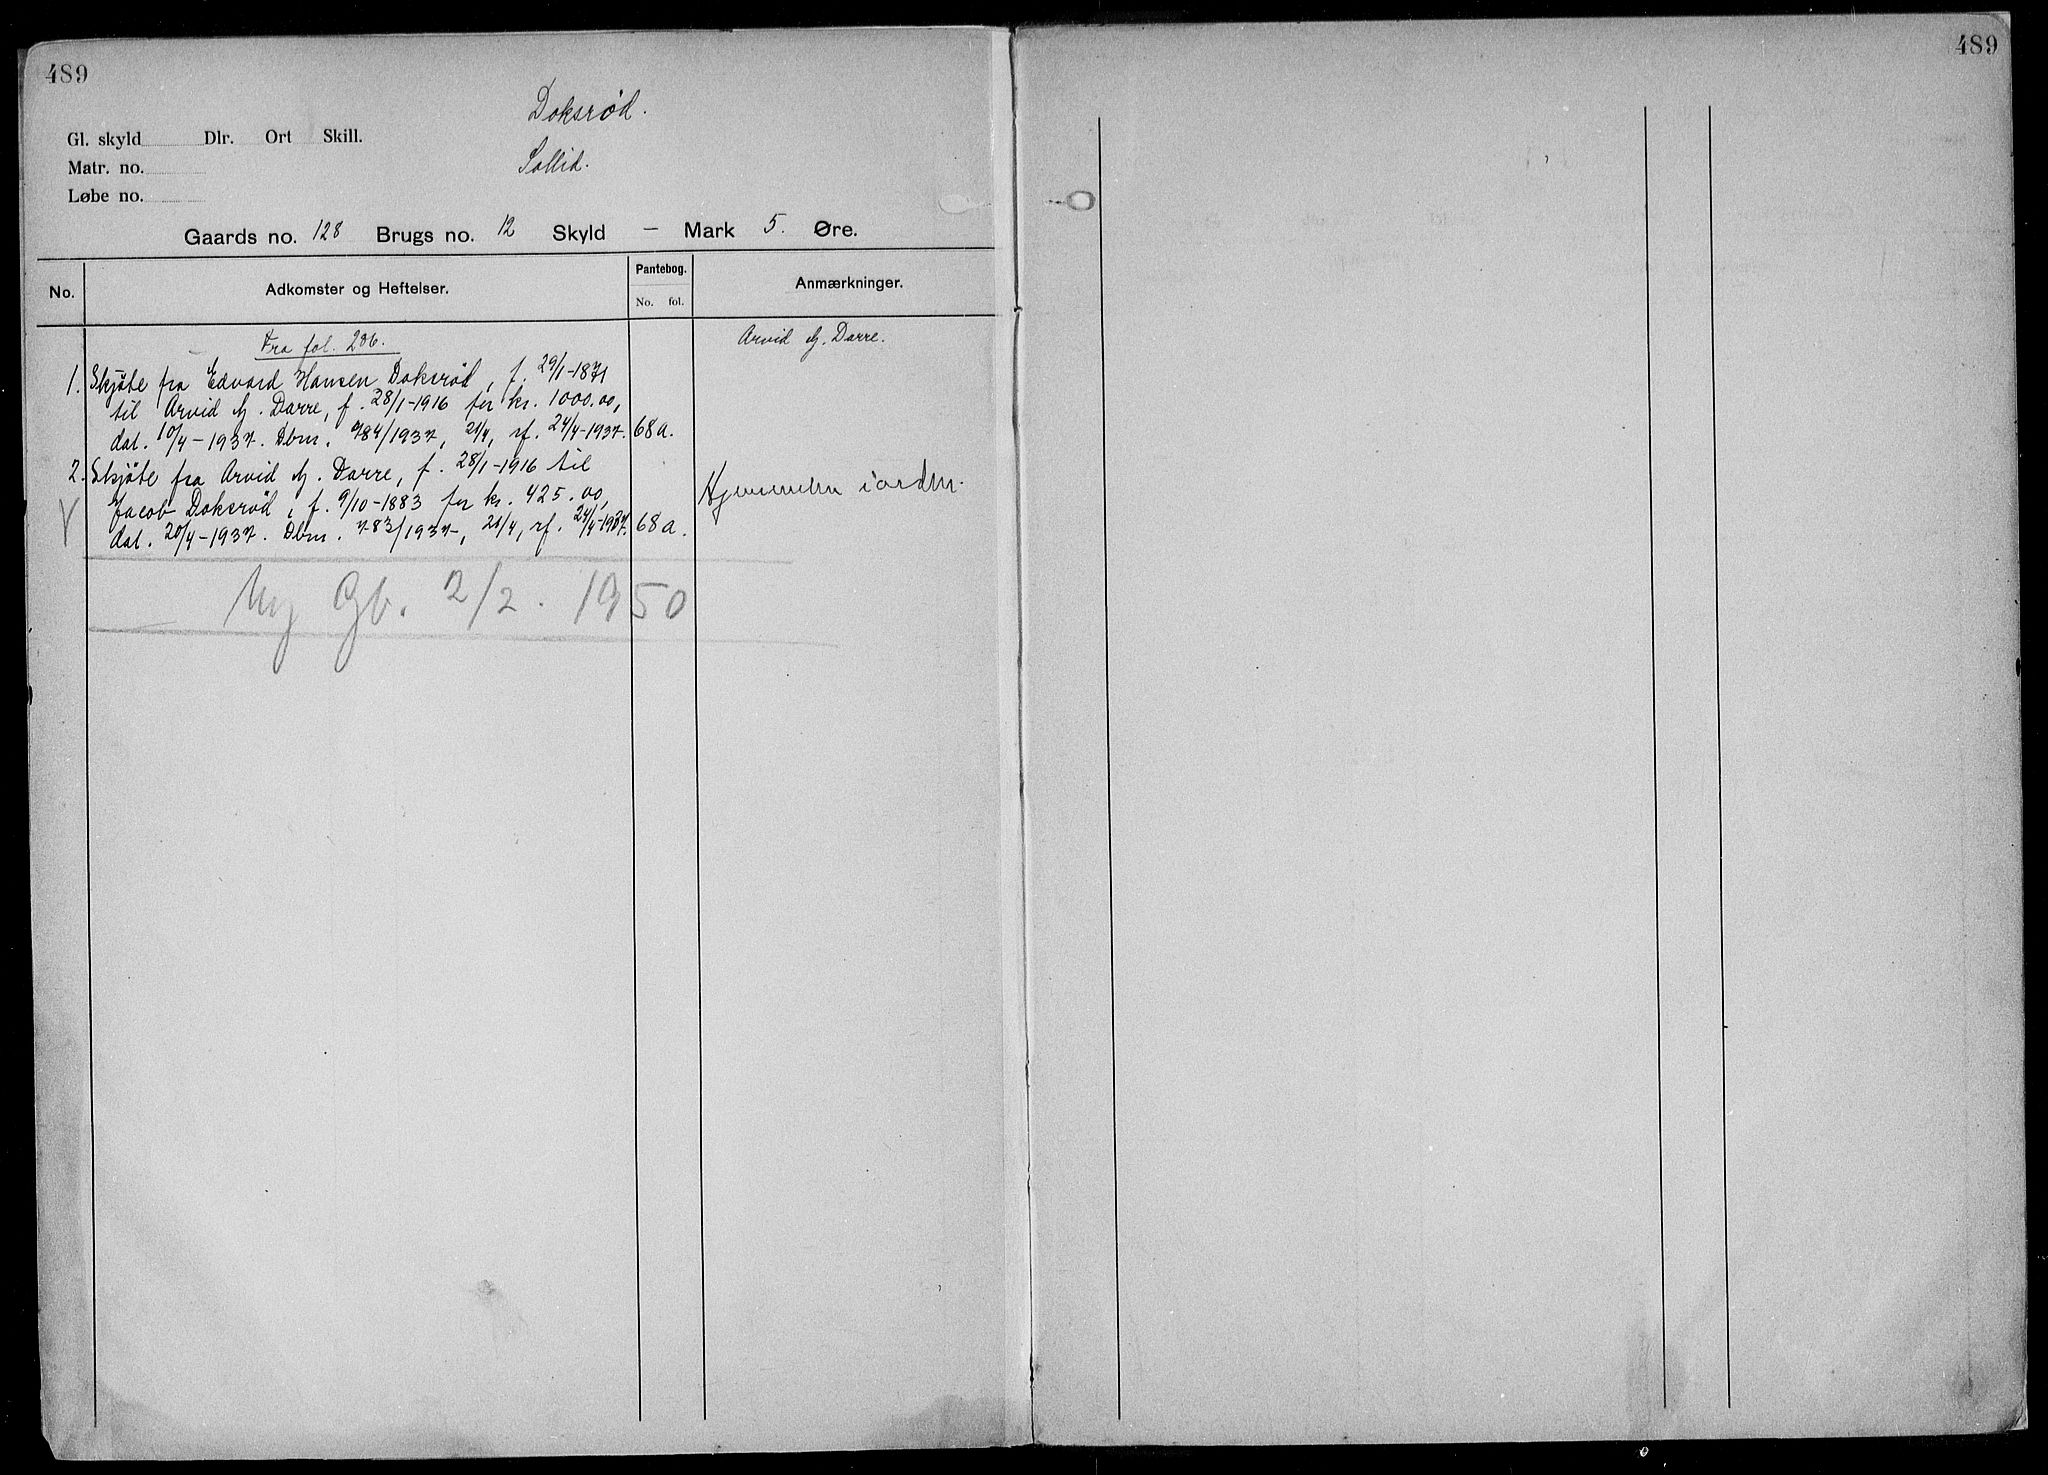 489
489
Doksrød.
Gl. skyld Dlr. Ort Skill.
Matr. no.
Sollid.
Løbe no.
Gaards no. 128 Brugs no. 12 Skyld - Mark 5. Øre.
No. Adkomster og Heftelser. Pantebog. Anmærkninger.
No. fol.
Fra fol. 206. Arvid G. Darre.
1. Skjøte fra Edvard Hansen Doksrød, f. 29/1-1871
til Arvid G. Darre, f. 28/1-1916 for kr. 1000.00,
dat. 10/4-1937. Dbnr. 784/1937, 21/4, rf. 24/4-1937. 68a.
2. Skjøte fra Arvid G. Darre, f. 28/1-1916 til
Jacob Doksrød, f. 9/10-1883 for kr. 425.00, Hjemmelen i orden.
dat. 20/4-1937. Dbnr. 783/1937, 21/4, rf. 24/4-1937. 68a.
Ny Gb. 2/2. 1950